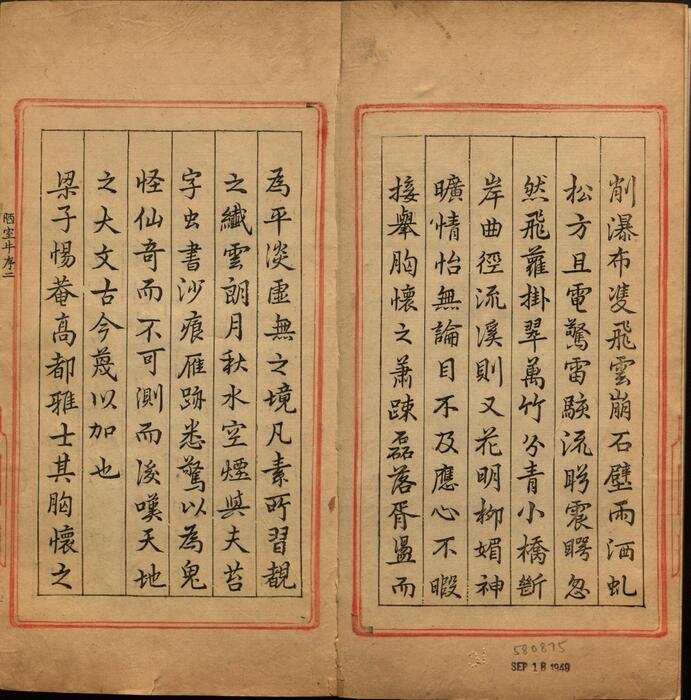 削瀑布雙飛雲崩石壁雨洒虬
松方且電驚雷駭流眄震睜忽
然飛蘿掛翠萬竹分青小橋斷
岸曲徑流溪則又花明柳媚神
曠情怡無論目不及應心不暇
接舉胸懷之蕭踈磊落胥盪而
為平淡虛無之境凡素所習覩
之纖雲朗月秋水空煙與夫苔
字虫書沙痕雁跡悉驚以為鬼
怪仙奇而不可測而後嘆天地
之大文古今蔑以加也
梁子惕菴高都雅士其胸懷之
陋室 序二
580875
SEP 18 1949